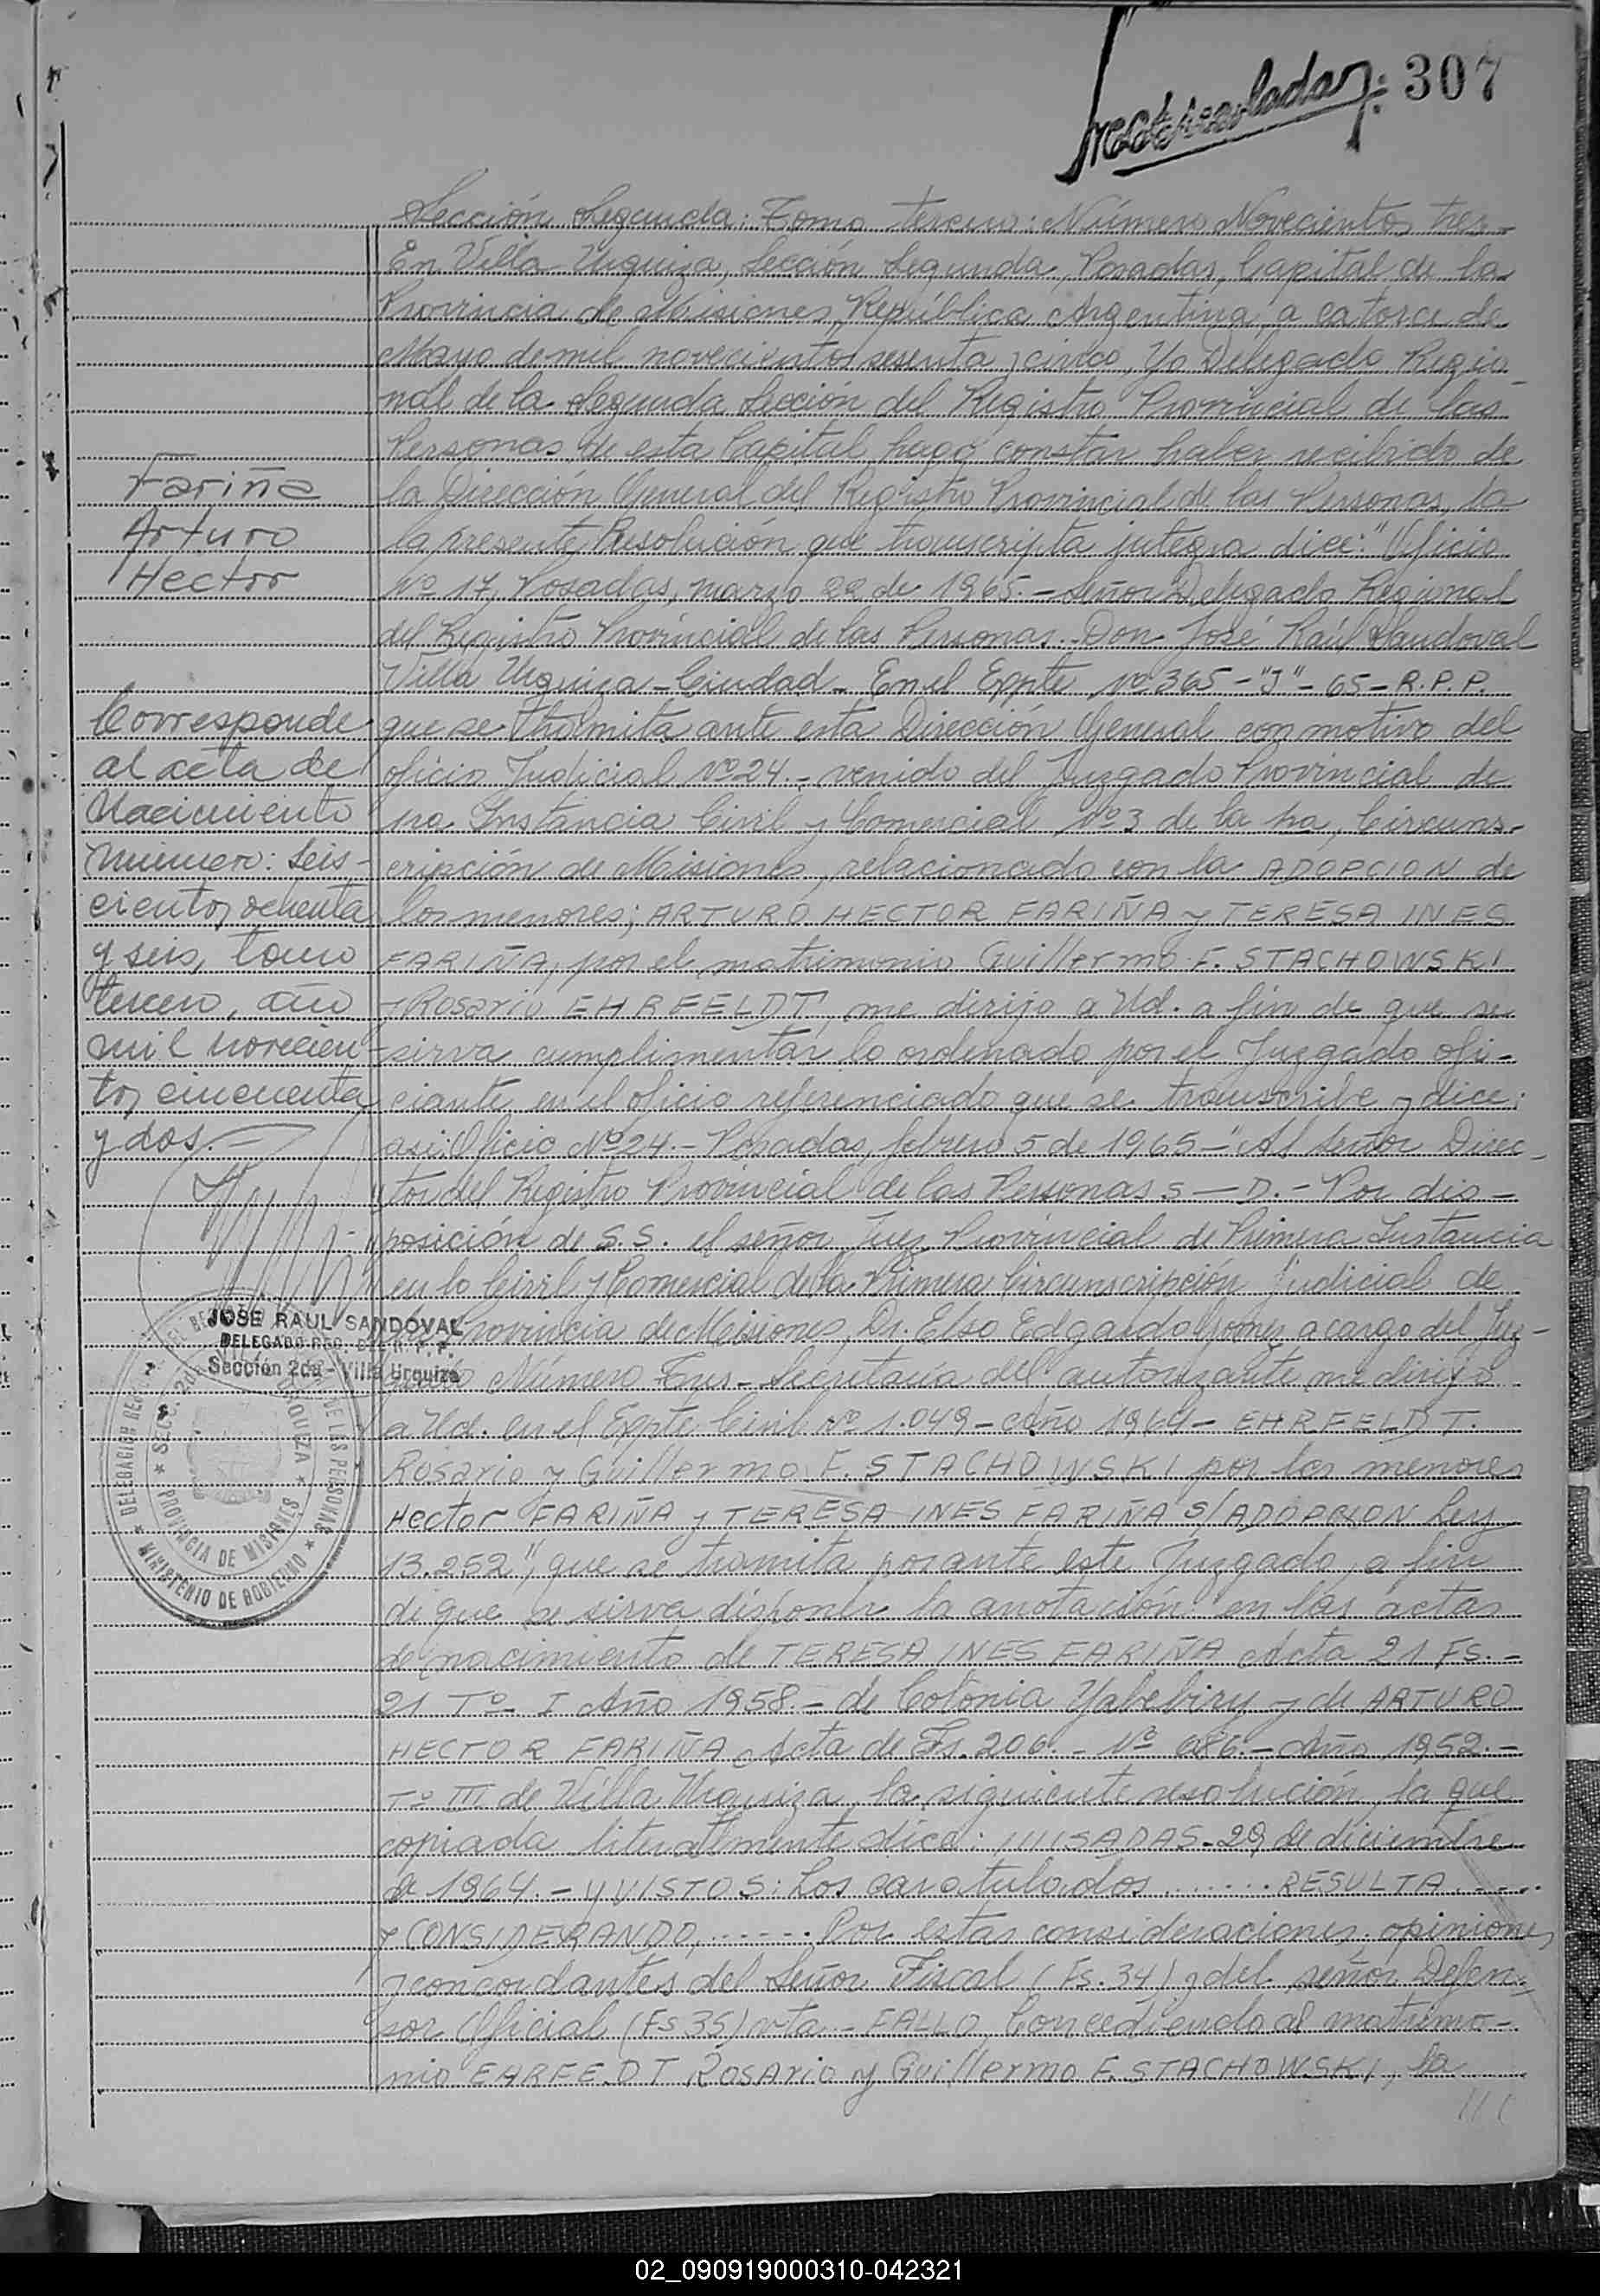 307
Sección Segunda: Tomo tercero: Número Novecientos tres-
En Villa Urquiza, Sección Segunda, Posadas, Capital de la
Provincia de Misiones, República Argentina, a catorce de
Mayo de mil novecientos sesenta y cinco, Yo Delegado Regio-
nal de la Segunda Sección del Registro Provincial de las
Personas, de esta Capital, hago constar haber recibido de
la Dirección General del Registro Provincial de las Personas, la
la presente Resolución que transcripta integra dice: "Oficio
Nº 17, Posadas, marzo 22 de 1965.- Señor Delegado Regional
del Registro Provincial de las Personas.- Don José Raúl Sandoval
Villa Urquiza - Ciudad - En el Expte Nº 365-"J"-65-R.P.P.
que se tramita ante esta Dirección General con motivo del
oficio Judicial Nº 24.- venido del Juzgado Provincial de
1ra Instancia Civil y Comercial Nº 3 de la 1ra, Circuns-
cripción de Misiones, relacionado con la ADOPCION de
los menores; ARTURO HECTOR FARIÑA y TERESA INES
FARIÑA, por el matrimonio Guillermo F. STACHOWSKI
y Rosario EHRFELDT, me dirijo a Ud. a fin de que se
sirva cumplimentar lo ordenado por el Juzgado ofi-
ciante en el oficio referenciado que se transcribe y dice:
asi: Oficio Nº 24.- Posadas, febrero 5 de 1965-"Al señor Direc-
"tor del Registro Provincial de las Personas S-D.- Por dis-
"posición de S.S. el señor Juez Provincial de Primera Instancia
"en lo Civil y Comercial de la Primera Circunscripción Judicial de
Provincia de Misiones, Dr. Elso Edgardo Gomez a cargo del Juz-
Número Tres - Secretaría del autorizante me dirijo
a Ud. en el Expte Civil Nº 1.049 - Año 1964 - EHRFELDT.
Rosario y Guillermo F. STACHOWSKI por los menores
Hector FARIÑA y TERESA INES FARIÑA S/ADOPCION Ley
13.252", que se tramita por ante este Juzgado, a fin
de que se sirva disponer la anotación: en las actas
de nacimiento de TERESA INES FARIÑA Acta 21 FS.-
21 Tº I Año 1958.- de Colonia Yabebiry y de ARTURO
HECTOR FARIÑA Acta de Fs. 206.- Nº 686.- Año 1952.-
Tº III de Villa Urquiza, la siguiente resolución, la que
copiada literalmente dice: ////SADAS-29 de diciembre
de 1964.- Y VISTOS: Los caratulados ....... RESULTA .....
y CONSIDERANDO, ...... Por estas consideraciones, opiniones
y concordantes del Señor Fiscal (Fs. 34) y del señor Defen-
sor Oficial (Fs 35) vta.- FALLO, Concediendo al matrimo-
nio EHRFE.DT Rosario y Guillermo F. STACHOWSKI, la
///
Fariña
Arturo
Hector
Corresponde
al acta de
Nacimiento
número: seis-
cientos ochenta
y seis, tomo
tercero, año
mil novecien-
tos cincuenta
y dos.
JOSE RAUL SANDOVAL
DELEGADO REG. DEL R. P. P.
Sección 2da - Villa Urquiza
DE LAS PERSONAS
SECC. 2da
URQUIZA
PROVINCIA DE MISIONES
MINISTERIO DE GOBIERNO
02_090919000310-042321